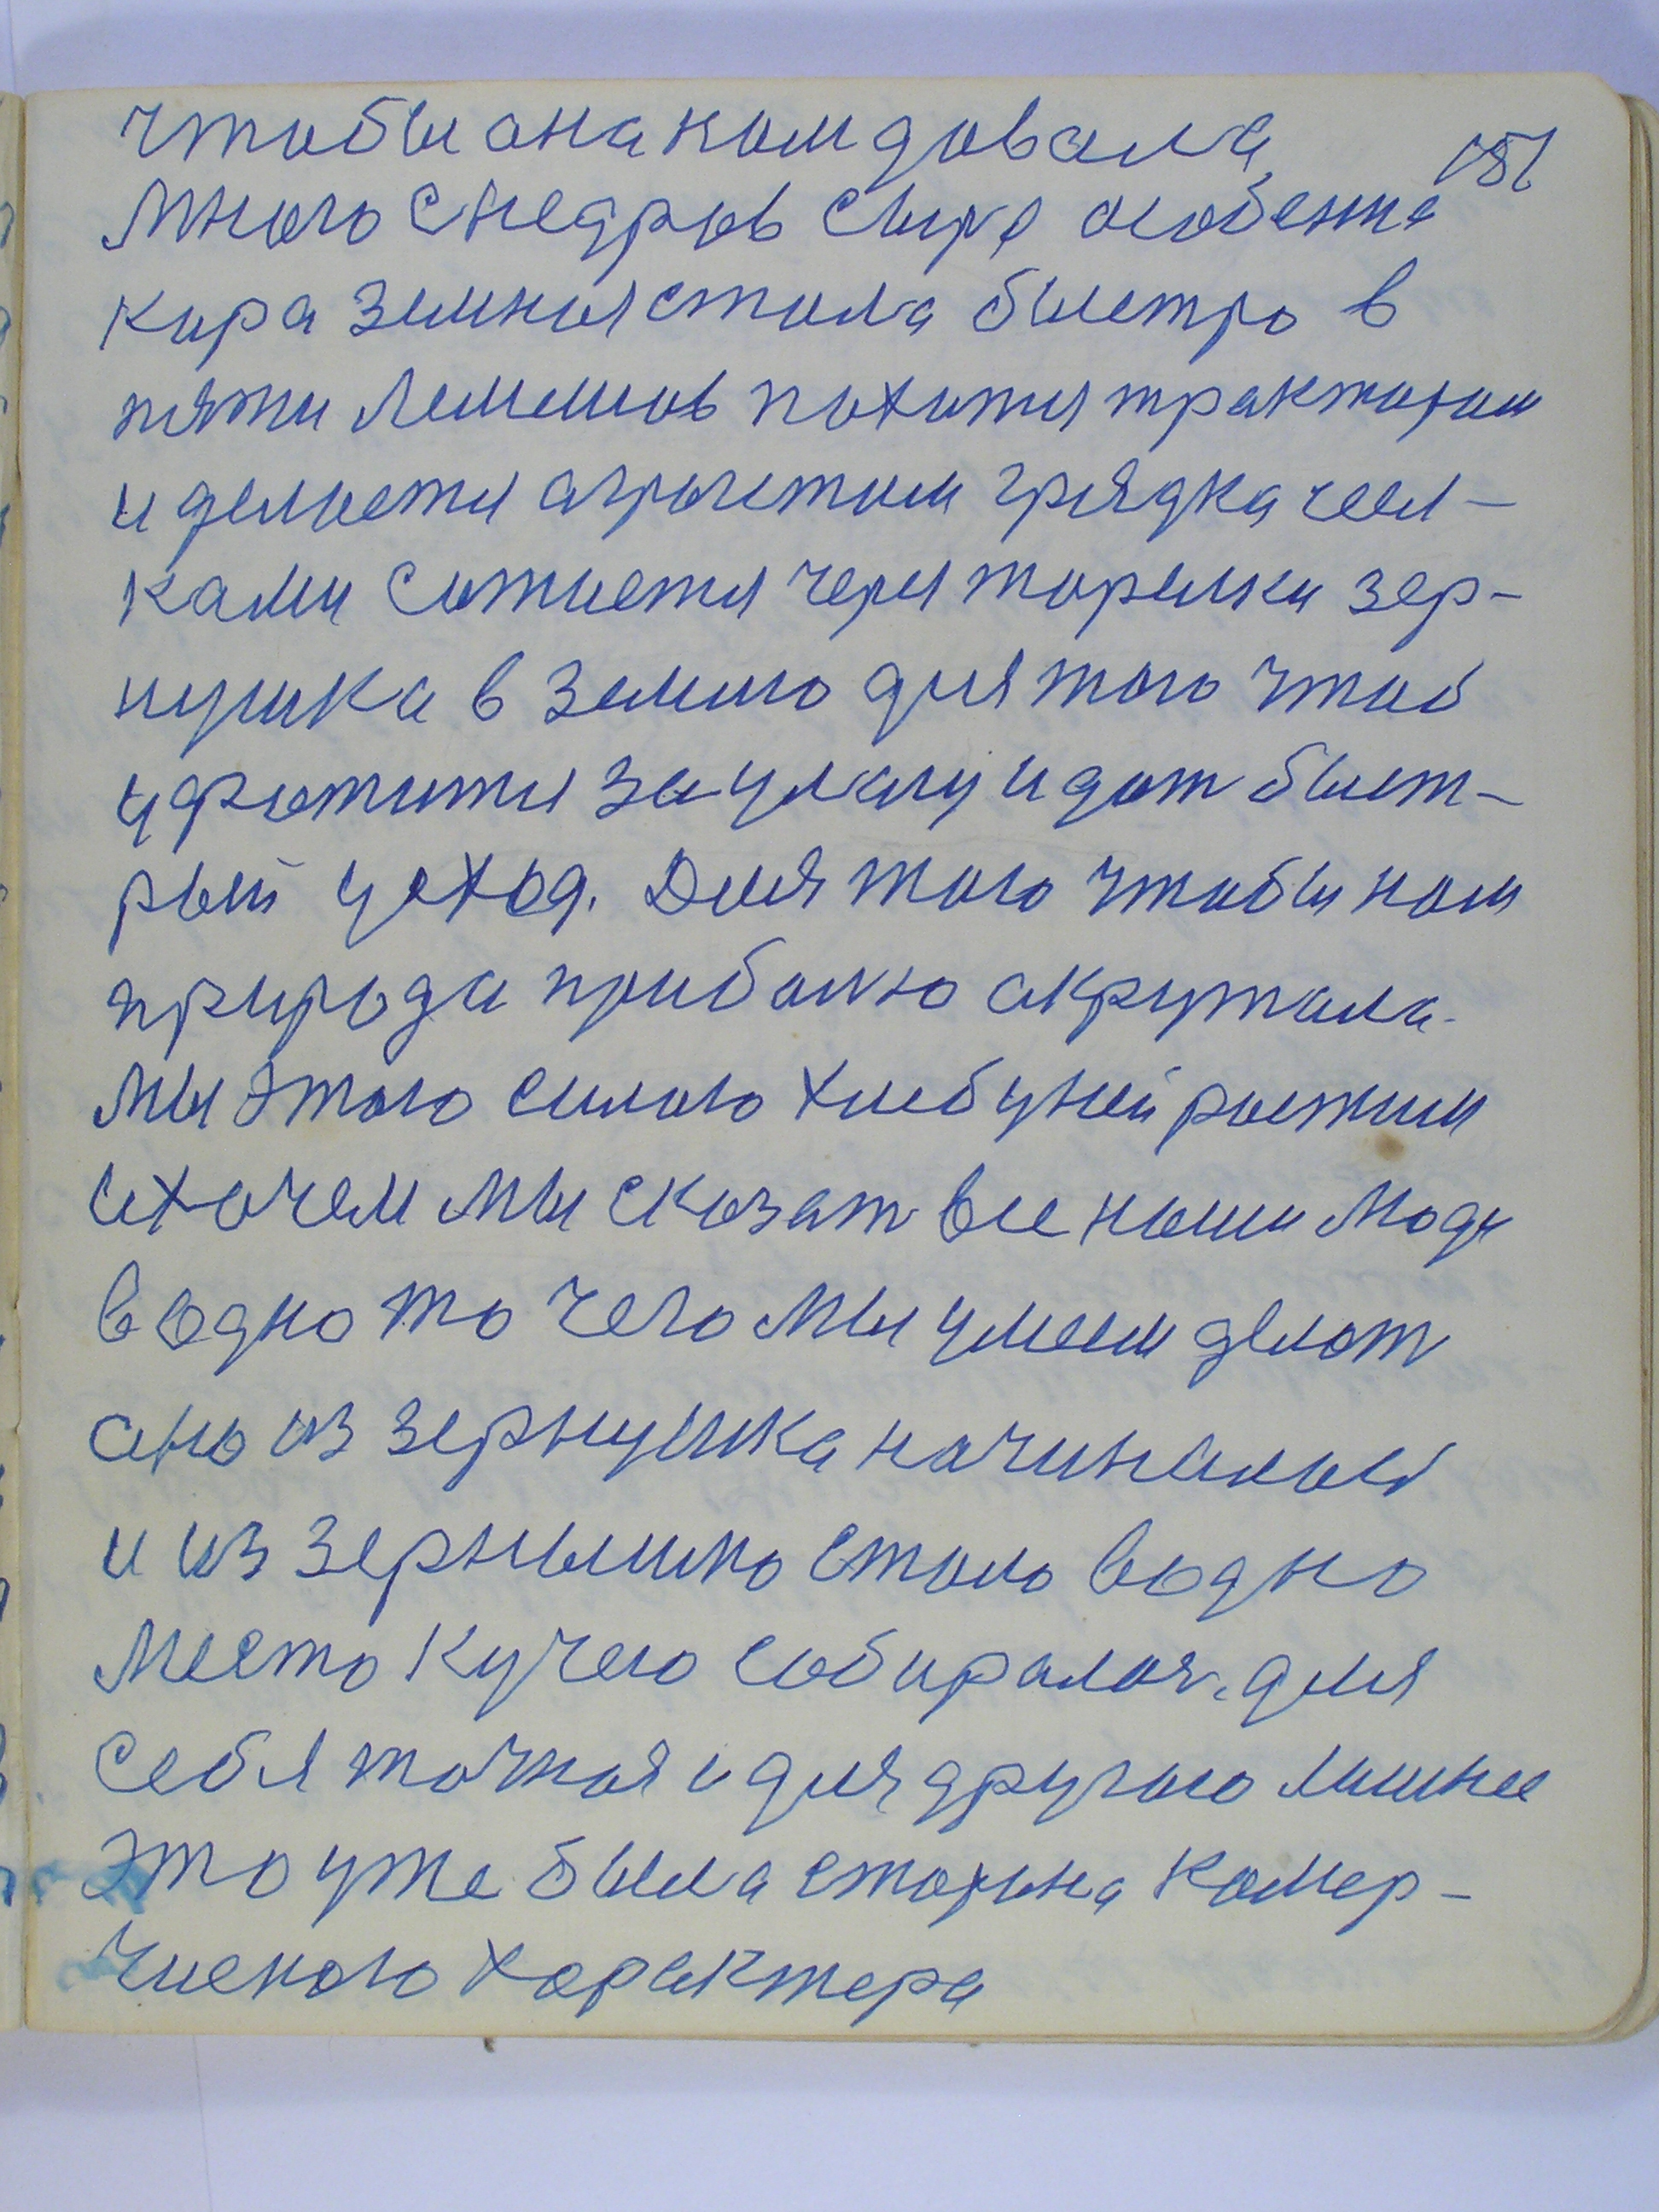 чтобы она нам давала 151
много с недров сырё особенно
кора земная стала быстро в
пяти лемешов пахатся трактором
и делается агрыстом грядка чел-
ками сажается через тарелки зер-
нушка в землю для того чтоб
ухватится за улагу идот быст-
рый усход. Для того чтобы нам
природа прибалю акружала.
мы этого силого хлеб у ней растим
и хочем мы сказат все наши моды
в одно то чего мы умеем делат
оно из зернушка начиналось
и из зернышко стало в одно
место кучею собиралося для
себя можная и для другого лишнее
это уже была сторона комер-
чиского характера